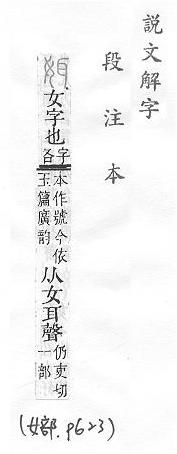 説文解字
段注本
㛅女字也字各本作號今依玉篇廣韵从女耳聲仍吏切一部
(女部.p623)